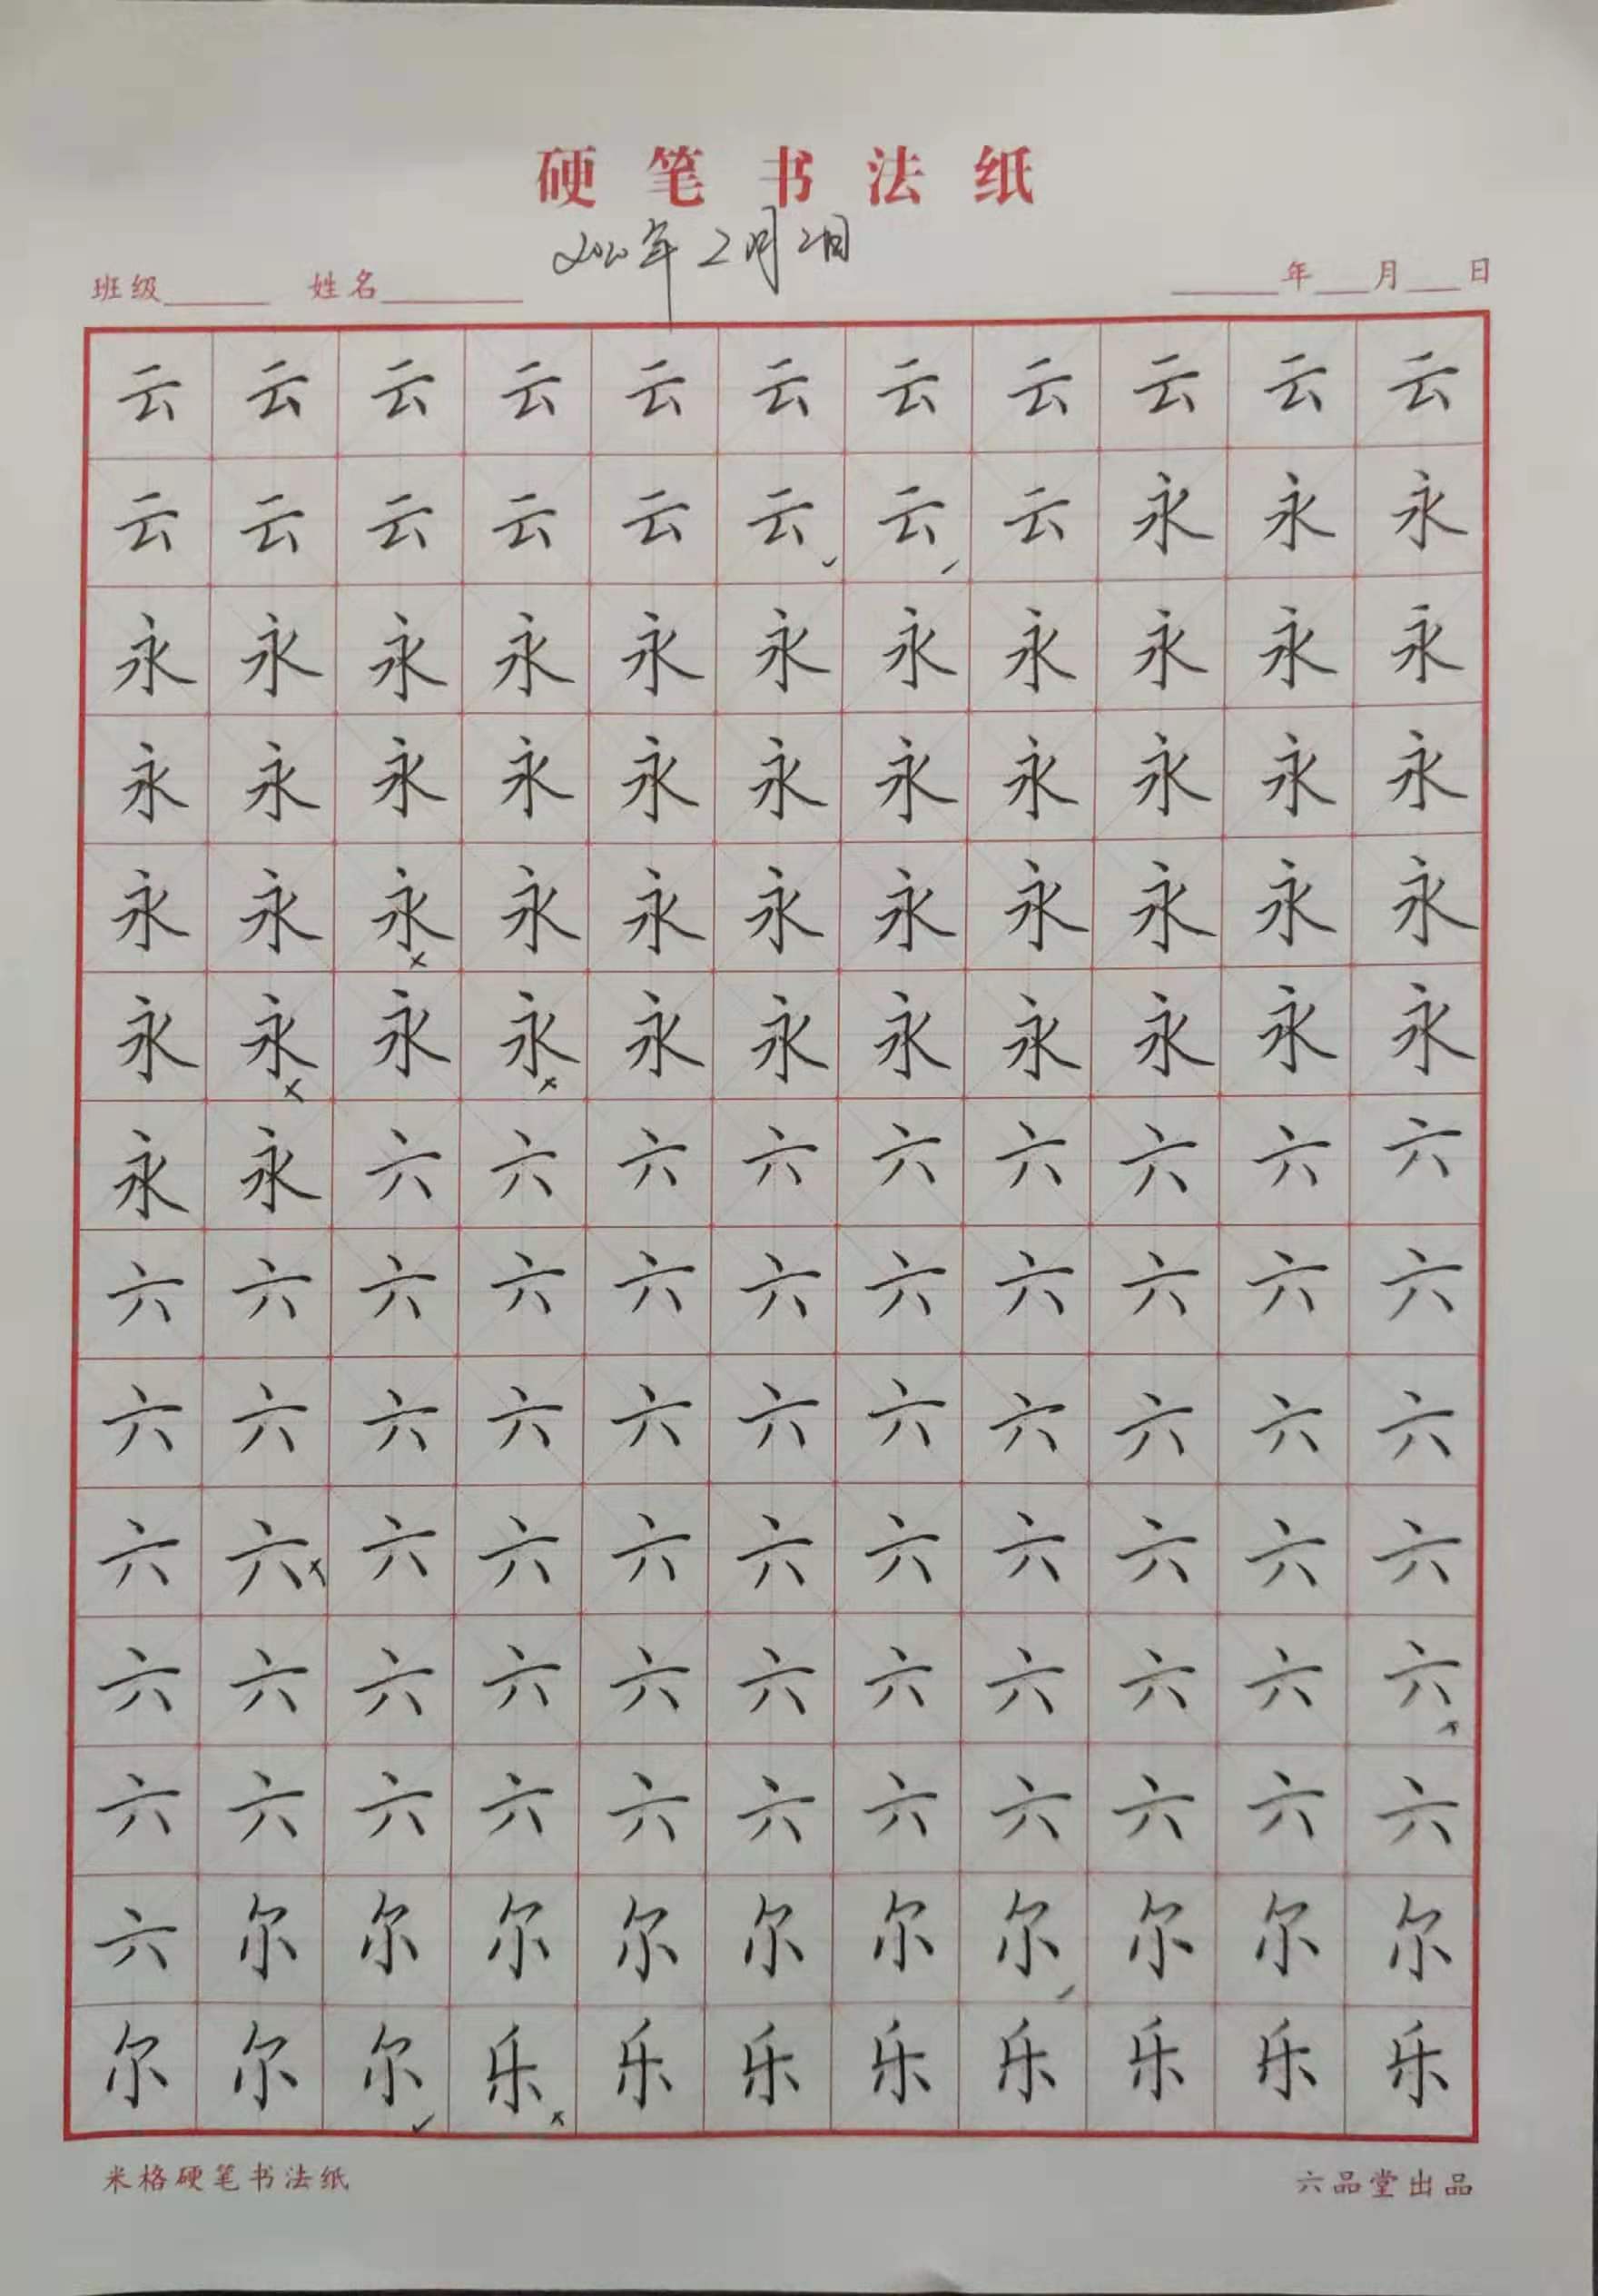 硬笔书法纸
2020年2月2日
班级 姓名 年 月 日
云云云云云云云云云云云
云云云云云云云云永永永
永永永永永永永永永永永
永永永永永永永永永永永
永永永永永永永永永永永
永永永永永永永永永永永
永永六六六六六六六六六
六六六六六六六六六六六
六六六六六六六六六六六
六六六六六六六六六六六
六六六六六六六六六六六
六六六六六六六六六六六
六尔尔尔尔尔尔尔尔尔尔
尔尔尔乐乐乐乐乐乐乐乐
米格硬笔书法纸 六品堂出品